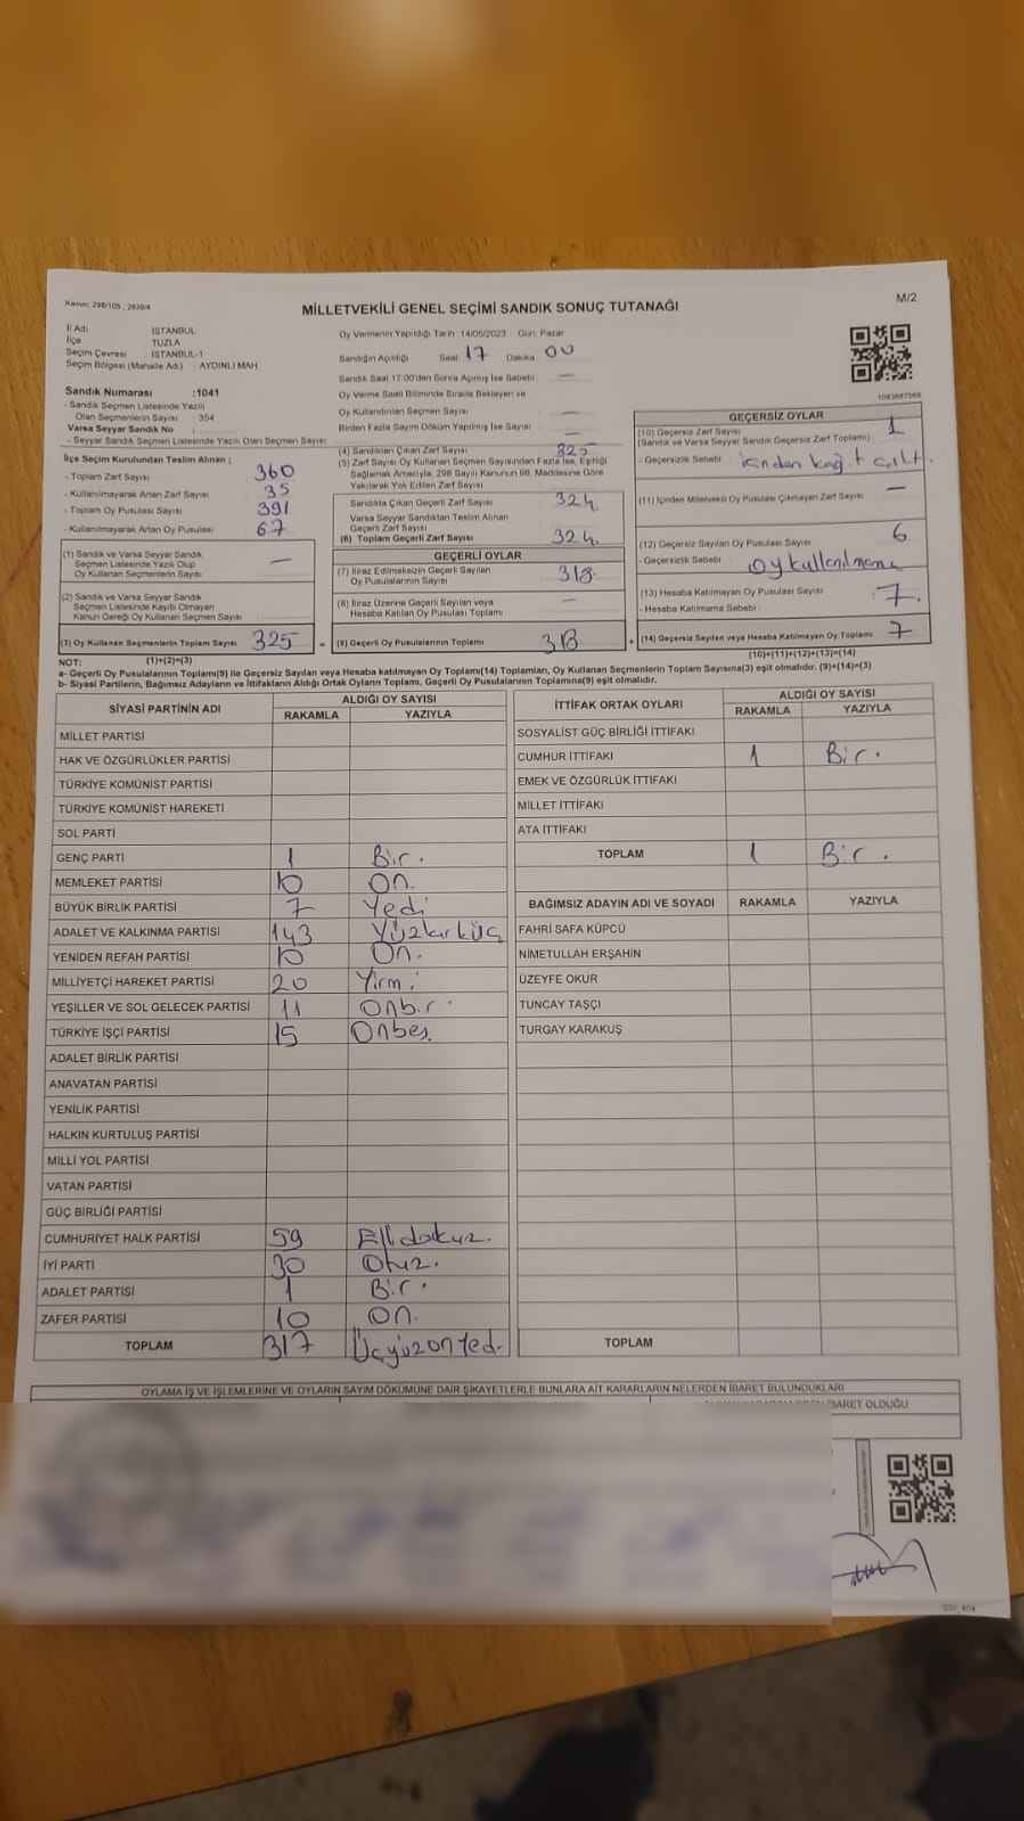 Kanun: 298/105 , 2839/4
MİLLETVEKİLİ GENEL SEÇİMİ SANDIK SONUÇ TUTANAĞI
M/2
İl Adı İSTANBUL
İlçe TUZLA
Seçim Çevresi İSTANBUL-1
Seçim Bölgesi (Mahalle Ad.) : AYDINLI MAH
Sandık Numarası :1041
- Sandık Seçmen Listesinde Yazılı
Olan Seçmenlerin Sayısı : 354
Varsa Seyyar Sandık No :
- Seyyar Sandık Seçmen Listesinde Yazılı Olan Seçmen Sayısı:
İlçe Seçim Kurulundan Teslim Alınan ;
- Toplam Zarf Sayısı 360
- Kullanılmayarak Artan Zarf Sayısı 35
- Toplam Oy Pusulası Sayısı 391
- Kullanılmayarak Artan Oy Pusulası 67
(1) Sandık ve Varsa Seyyar Sandık
Seçmen Listesinde Yazılı Olup
Oy Kullanan Seçmenlerin Sayısı —
(2) Sandık ve Varsa Seyyar Sandık
Seçmen Listesinde Kayıtlı Olmayan
Kanun Gereği Oy Kullanan Seçmen Sayısı
(3) Oy Kullanan Seçmenlerin Toplam Sayısı 325 =
Oy Vermenin Yapıldığı Tarih :14/05/2023 Gün: Pazar
Sandığın Açıldığı Saat: 17 Dakika 00
Sandık Saat 17:00'den Sonra Açılmış İse Sebebi: —
Oy Verme Saati Bitiminde Sırada Bekleyen ve
Oy Kullandırılan Seçmen Sayısı —
Birden Fazla Sayım Döküm Yapılmış İse Sayısı —
(4) Sandıktan Çıkan Zarf Sayısı 325
(5) Zarf Sayısı Oy Kullanan Seçmen Sayısından Fazla İse, Eşitliği
Sağlamak Amacıyla, 298 Sayılı Kanunun 98. Maddesine Göre
Yakılarak Yok Edilen Zarf Sayısı
Sandıkta Çıkan Geçerli Zarf Sayısı 324
Varsa Seyyar Sandıktan Teslim Alınan
Geçerli Zarf Sayısı
(6) Toplam Geçerli Zarf Sayısı 324
GEÇERLİ OYLAR
(7) İtiraz Edilmeksizin Geçerli Sayılan
Oy Pusulalarının Sayısı 318
(8) İtiraz Üzerine Geçerli Sayılan veya
Hesaba Katılan Oy Pusulası Toplamı —
(9) Geçerli Oy Pusulalarının Toplamı 318 +
GEÇERSİZ OYLAR
(10) Geçersiz Zarf Sayısı 1
(Sandık ve Varsa Seyyar Sandık Geçersiz Zarf Toplamı)
- Geçersizlik Sebebi
(11) İçinden Milletvekili Oy Pusulası Çıkmayan Zarf Sayısı —
(12) Geçersiz Sayılan Oy Pusulası Sayısı 6
- Geçersizlik Sebebi
(13) Hesaba Katılmayan Oy Pusulası Sayısı : 7.
- Hesaba Katılmama Sebebi
(14) Geçersiz Sayılan veya Hesaba Katılmayan Oy Toplamı 7
(10)+(11)+(12)+(13)=(14)
NOT: (1)+(2)=(3)
a- Geçerli Oy Pusulaları Toplamı(9) ile Geçersiz Sayılan veya Hesaba katılmayan Oy Toplamı(14) Toplamları, Oy Kullanan Seçmenlerin Toplam Sayısına(3) eşit olmalıdır. (9)+(14)=(3)
b- Siyasi Partilerin, Bağımsız Adayların ve İttifakların Aldığı Ortak Oyların Toplamı, Geçerli Oy Pusulalarının Toplamına(9) eşit olmalıdır.
SİYASİ PARTİNİN ADI ALDIĞI OY SAYISI
RAKAMLA YAZIYLA
MİLLET PARTİSİ
HAK VE ÖZGÜRLÜKLER PARTİSİ
TÜRKİYE KOMÜNİST PARTİSİ
TÜRKİYE KOMÜNİST HAREKETİ
SOL PARTİ
GENÇ PARTİ 1 Bir.
MEMLEKET PARTİSİ 10 On.
BÜYÜK BİRLİK PARTİSİ 7 Yedi
ADALET VE KALKINMA PARTİSİ 143 Yüzkırküç
YENİDEN REFAH PARTİSİ 10 On.
MİLLİYETÇİ HAREKET PARTİSİ 20 Yirmi
YEŞİLLER VE SOL GELECEK PARTİSİ 11 Onbir
TÜRKİYE İŞÇİ PARTİSİ 15 Onbeş
ADALET BİRLİK PARTİSİ
ANAVATAN PARTİSİ
YENİLİK PARTİSİ
HALKIN KURTULUŞ PARTİSİ
MİLLİ YOL PARTİSİ
VATAN PARTİSİ
GÜÇ BİRLİĞİ PARTİSİ
CUMHURİYET HALK PARTİSİ 59 Ellidokuz.
İYİ PARTİ 30 Otuz.
ADALET PARTİSİ 1 Bir.
ZAFER PARTİSİ 10 On.
TOPLAM 317 Üçyüzonyed.
İTTİFAK ORTAK OYLARI ALDIĞI OY SAYISI
RAKAMLA YAZIYLA
SOSYALİST GÜÇ BİRLİĞİ İTTİFAKI
CUMHUR İTTİFAKI 1 Bir.
EMEK VE ÖZGÜRLÜK İTTİFAKI
MİLLET İTTİFAKI
ATA İTTİFAKI
TOPLAM 1 Bir.
BAĞIMSIZ ADAYIN ADI VE SOYADI RAKAMLA YAZIYLA
FAHRİ SAFA KÜPCÜ
NİMETULLAH ERŞAHİN
ÜZEYFE OKUR
TUNCAY TAŞÇI
TURGAY KARAKUŞ
TOPLAM
OYLAMA İŞ VE İŞLEMLERİNE VE OYLARIN SAYIM DÖKÜMÜNE DAİR ŞİKAYETLERLE BUNLARA AİT KARARLARIN NELERDEN İBARET BULUNDUKLARI
İBARET OLDUĞU